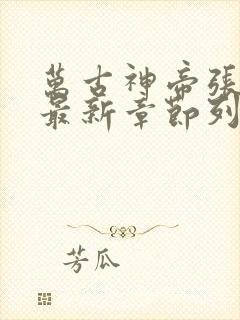 萬古神帝張
最新章節列
芳瓜